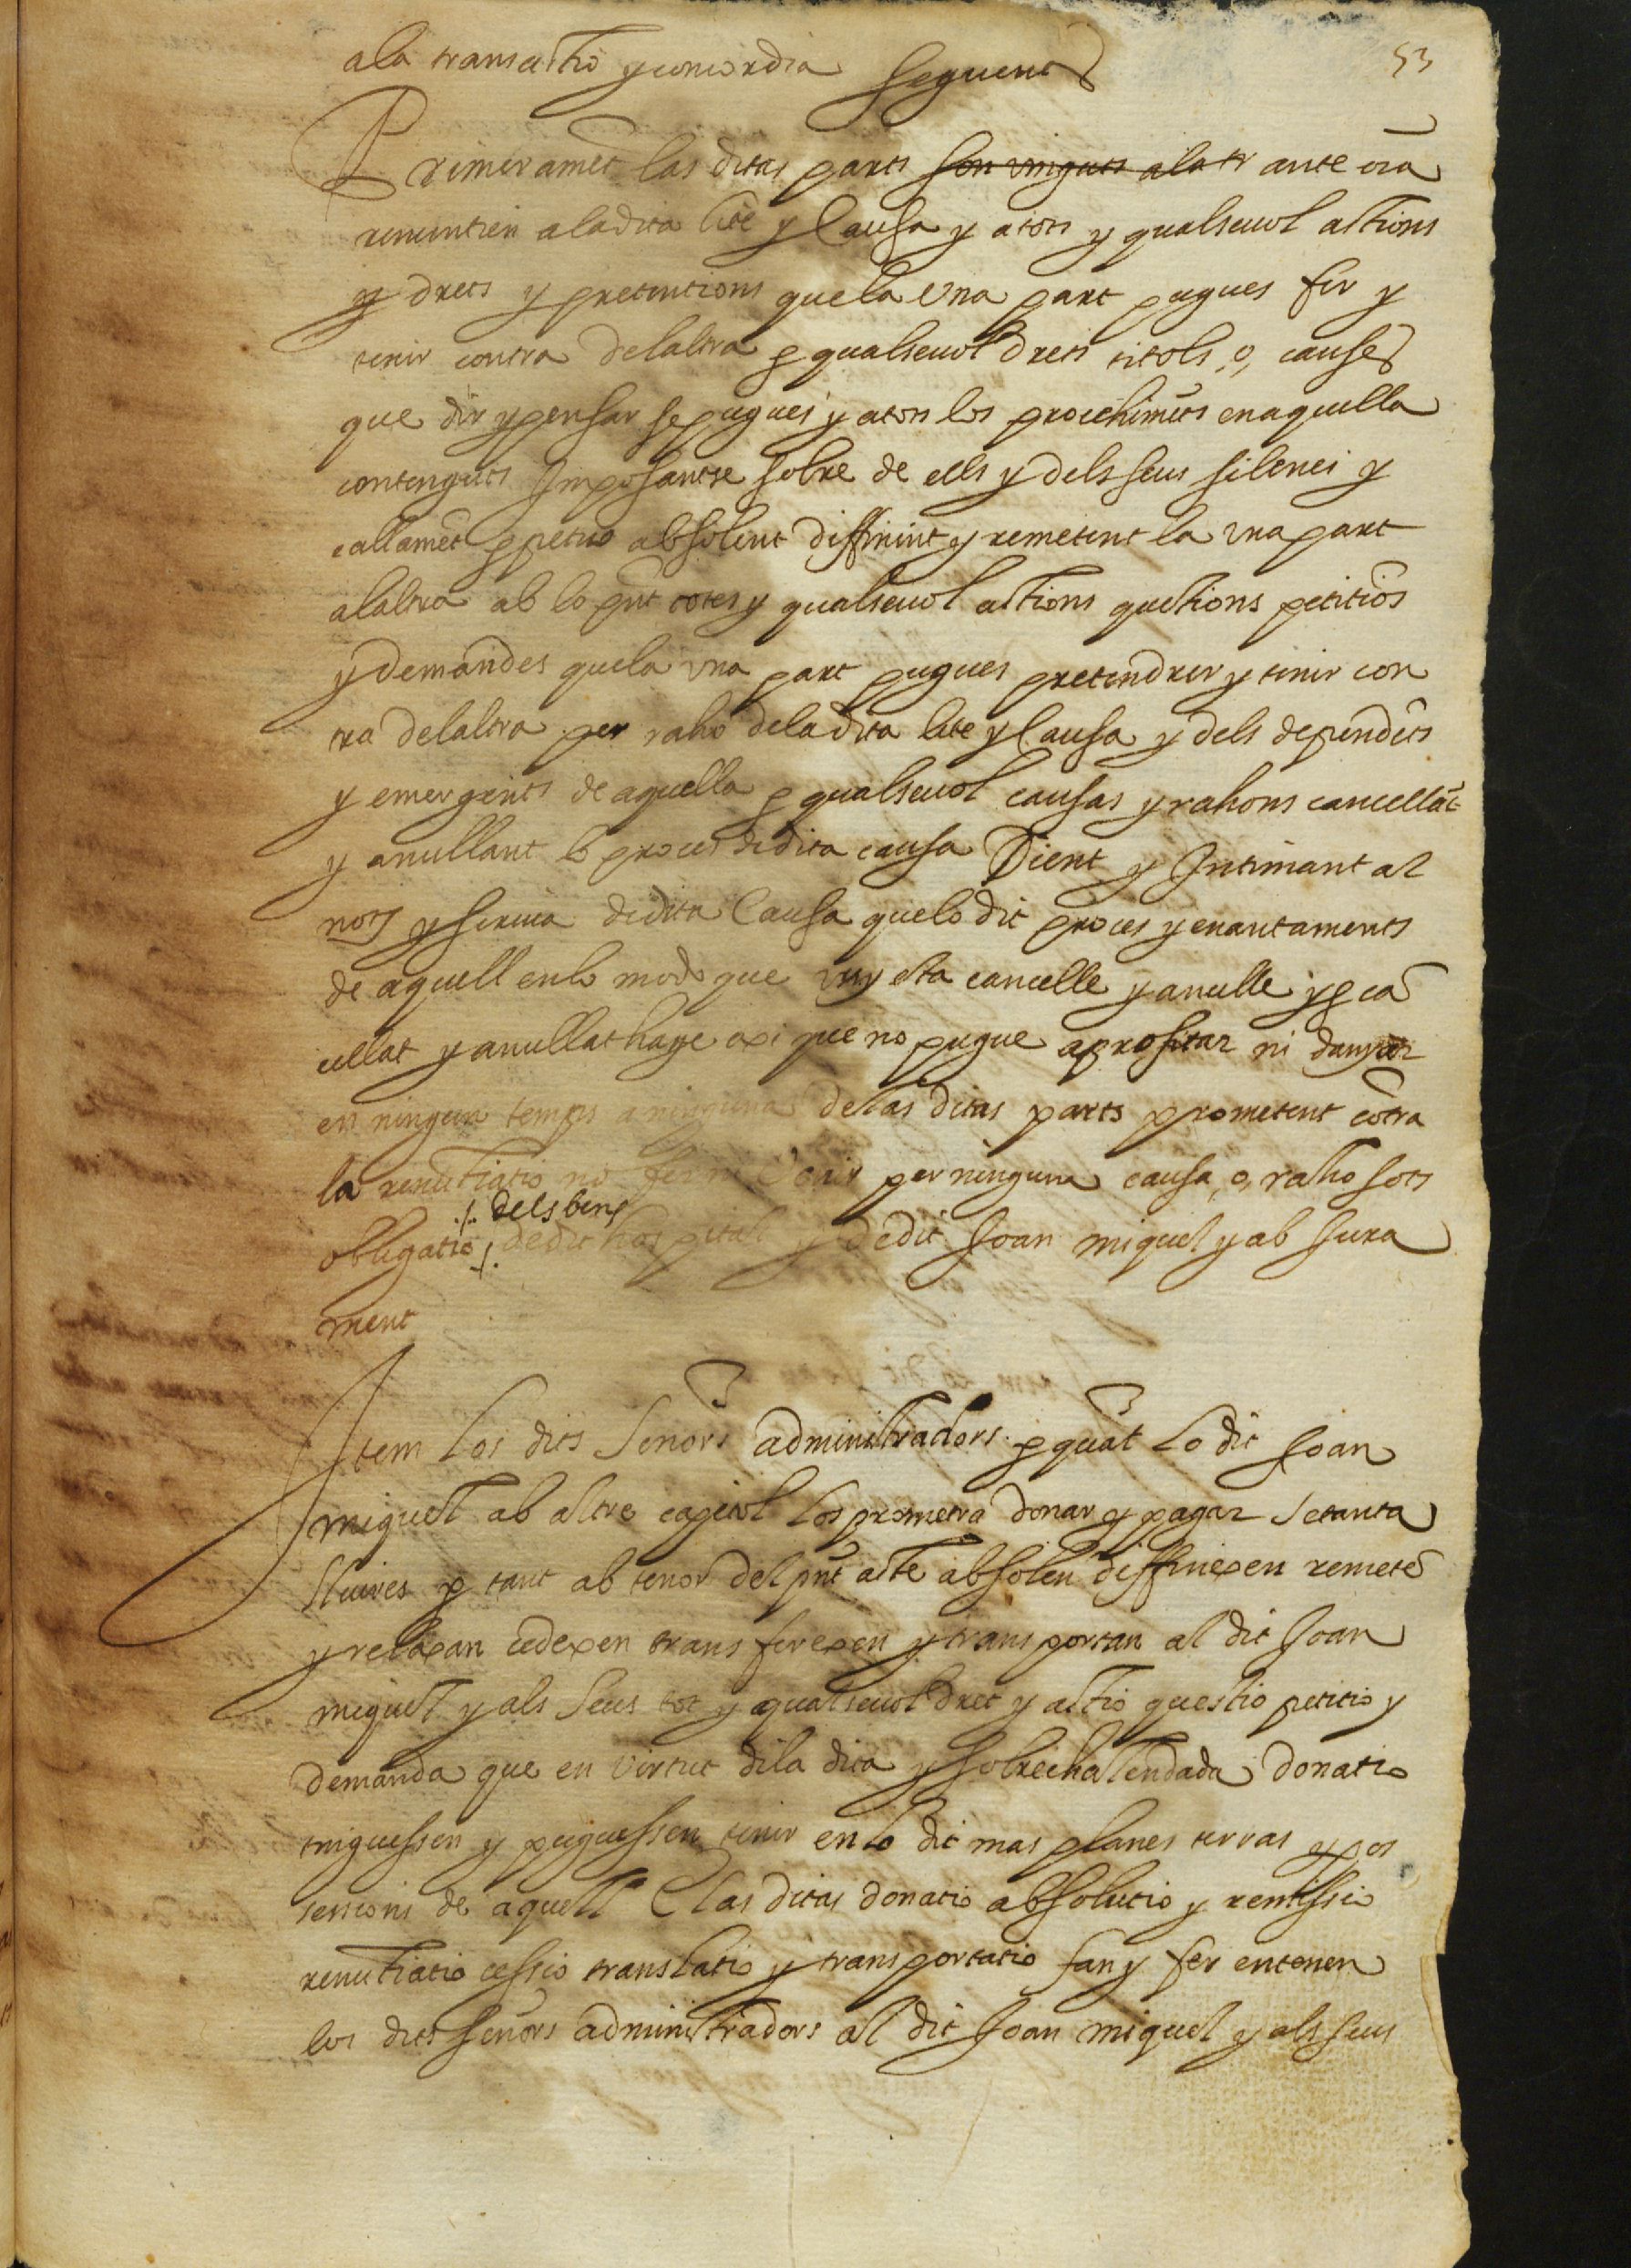 53
ala transactio y concordia seguent
Primeramēt las ditas parts son vingues ala tr ante oīa
renuntien aladita lite y causa y a tots y qualseuol actions
y drets y pretentions que la vna part pugues fer y
tenir contra delaltra p qualseuol drets titols, o, causes
que dir y pensar se pugues y a tots los procehimēts en aquella
contenguts Imposantse sobre de ells y dels seus silenci y
callamēt ppetuo absolent diffinint y remetent la vna part
alaltra ab lo pnt totes y qualseuol actions questions petitiōs
y demandes que la vna part pugues pretendrer y tenir con
tra delaltra per raho de la dita lite y causa y dels dependēts
y emergents de aquella p qualseuol causas y rahons cancellāt
y anullant lo proces de dita causa Dient y Intimant al
notj y scriua de dita Causa que lo dit proces y enantaments
de aquell en lo modo que vuy esta cancelle y anulle y p cā
cellat y anullat haje axi que no pugue aprofitar ni danyar
en ningun temps a ninguna de las ditas parts prometent cōtra
la renūtiatio no fer ni venir per ninguna causa, o, raho sots
./. dels bens
obligatio ./. de dit hospital y de dit Joan miquel y ab Jura
ment
Item los dits Señors administradors p quāt lo dit Joan
miquel ab altre capitol los prometra donar y pagar setanta
lliures p tant ab tenor del pnt acte absolen diffinexen remetē
y relaxan cedexen transferexen y transportan al dit Joan
miquel y als seus tot y qualseuol dret y actio questio petitio y
demanda que en virtut de la dita y sobrechalendada donatio
tinguessen y poguessen tenir en lo dit mas planes terras y pos
sessions de aquell E las ditas donatio absolutio y remissio
renūtiatio cessio translatio y transportatio fan y fer entenen
los dits señors administradors al dit Joan miquel y als seus